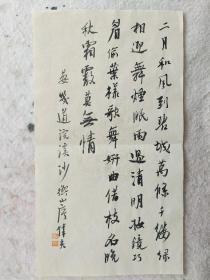 二月和風到碧城萬條千縷綠
相迎舞煙眠雨過清明妝鏡巧
眉偷葉樣歌舞妍曲借枝名晚
秋霜霰莫無情
晏幾道浣溪沙 衡山